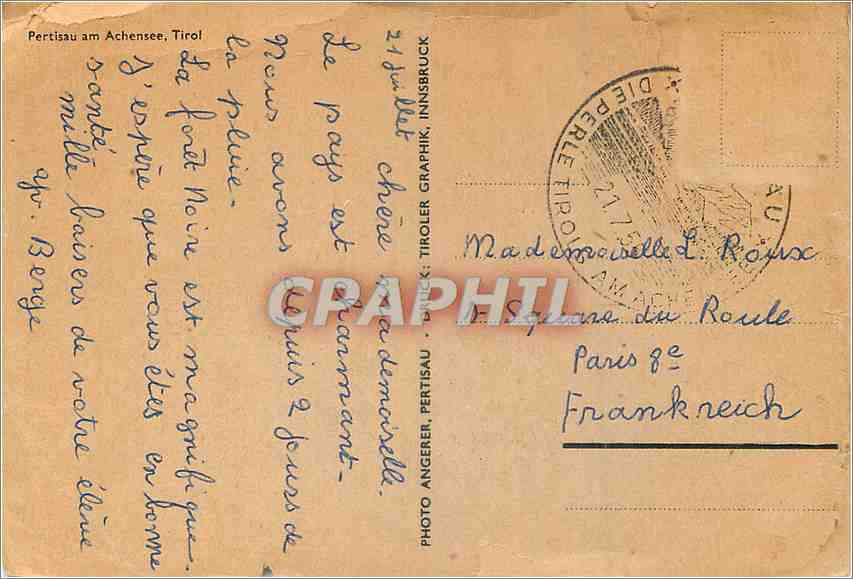 Pertisau am Achensee, Tirol
21 Juillet
chère mademoiselle.
Le pays est charmant-
Nous avons depuis 2 jours de
la pluie-
La forêt Noire est magnifique.
J'espère que vous êtes en bonne
santé.
mille baisers de votre élève
Berge
PHOTO ANGERER, PERTISAU · DRUCK: TIROLER GRAPHIK, INNSBRUCK
DIE PERLE TIROLS
AM ACHE
AU
21.7.5
Mademoiselle L. Roux
Square du Roule
Paris 8e
Frankreich
CRAPHIL